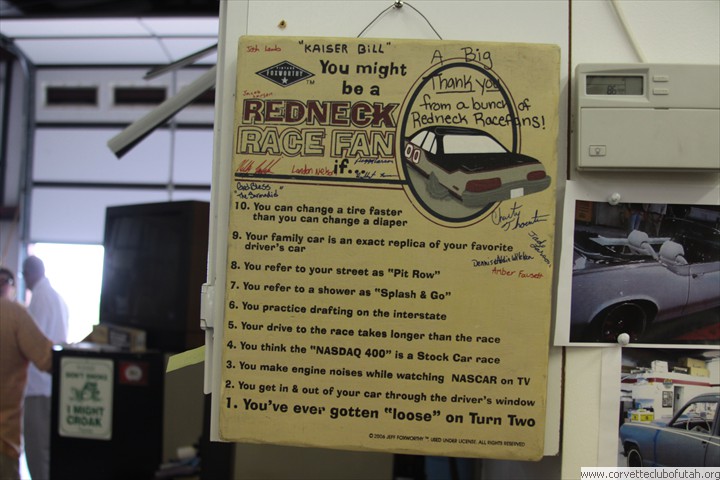 "KAISER BILL"
A Big
Thank you
from a bunch of
Redneck Racefans!
FOXWORTHY
TM
You might
be a
REDNECK
RACE FAN
if...
00
10. You can change a tire faster
than you can change a diaper
9. Your family car is an exact replica of your favorite
driver's car
8. You refer to your street as "Pit Row"
7. You refer to a shower as "Splash & Go"
6. You practice drafting on the interstate
5. Your drive to the race takes longer than the race
4. You think the "NASDAQ 400" is a Stock Car race
3. You make engine noises while watching NASCAR on TV
2. You get in & out of your car through the driver's window
1. You've ever gotten "loose" on Turn Two
© 2006 JEFF FOXWORTHY ™ USED UNDER LICENSE. ALL RIGHTS RESERVED.
Amber Fawsett
DON'T SMOKE
I MIGHT
CROAK
www.corvetteclubofutah.org